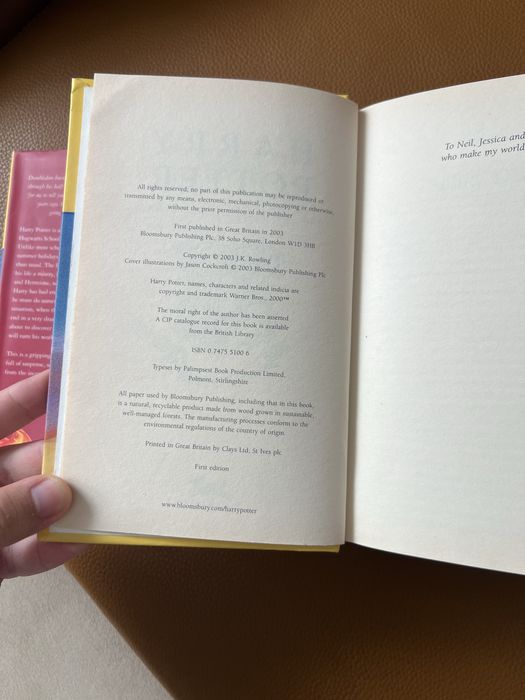 All rights reserved; no part of this publication may be reproduced or
transmitted by any means, electronic, mechanical, photocopying or otherwise,
without the prior permission of the publisher
First published in Great Britain in 2003
Bloomsbury Publishing Plc, 38 Soho Square, London W1D 3HB
Copyright © 2003 J.K. Rowling
Cover illustrations by Jason Cockcroft © 2003 Bloomsbury Publishing Plc
Harry Potter, names, characters and related indicia are
copyright and trademark Warner Bros., 2000™
The moral right of the author has been asserted
A CIP catalogue record for this book is available
from the British Library
ISBN 0 7475 5100 6
Typeset by Palimpsest Book Production Limited,
Polmont, Stirlingshire
All paper used by Bloomsbury Publishing, including that in this book,
is a natural, recyclable product made from wood grown in sustainable,
well-managed forests. The manufacturing processes conform to the
environmental regulations of the country of origin.
Printed in Great Britain by Clays Ltd, St Ives plc
First edition
www.bloomsbury.com/harrypotter
To Neil, Jessica and
who make my world
Dumbledore
Harry Potter is
Hogwarts School
Unlike most
summer holidays
than usual. The
his life a misery,
and Hermione,
Harry has had
he must do
situation, when
end in a very
about to discover
will turn his
This is a gripping
full of suspense,
from the